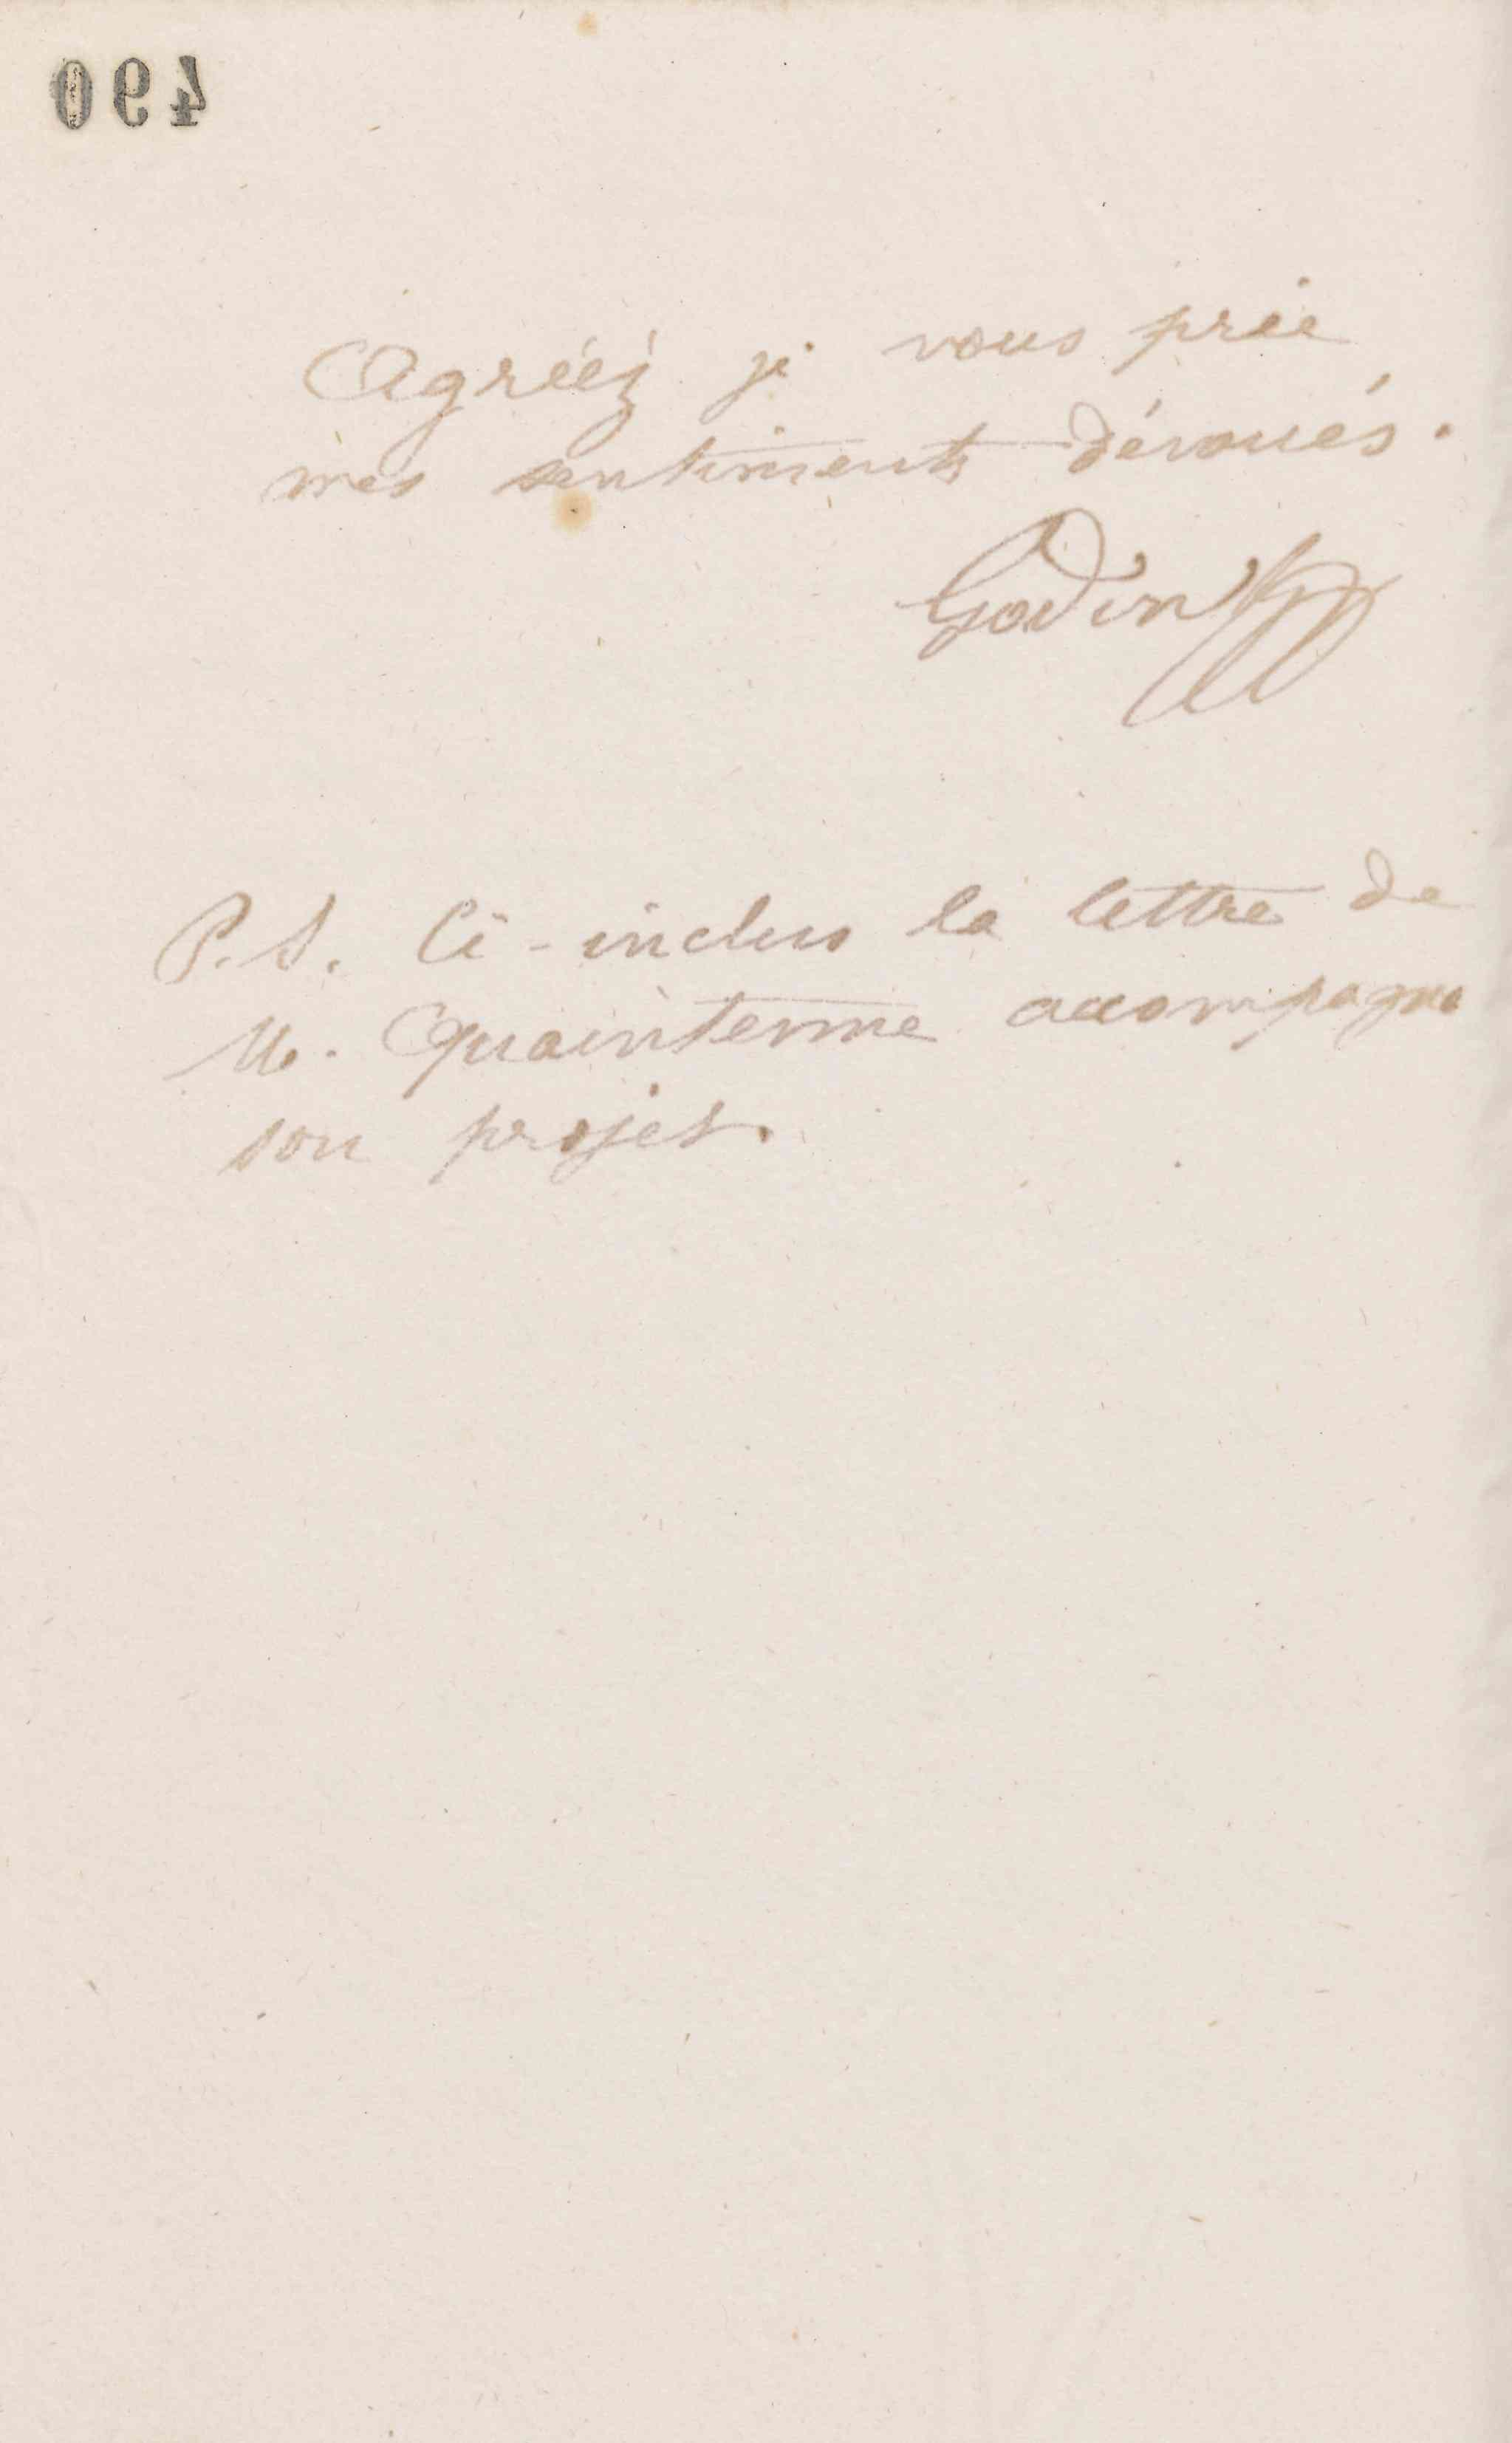 490
Agréez je vous prie
mes sentiments dévoués.
Godin
P.S. Ci-inclus la lettre de
M. Quaintenne accompagne
son projet.